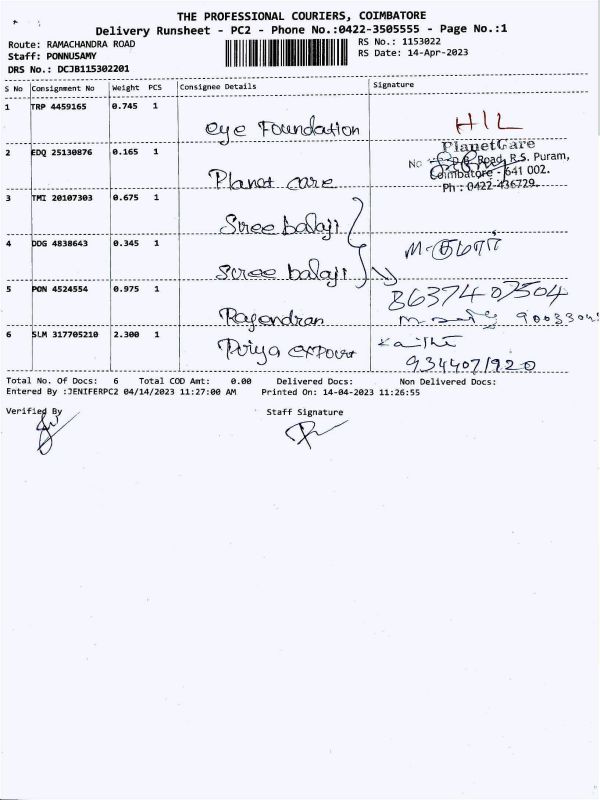 THE PROFESSIONAL COURIERS, COIMBATORE
Delivery Runsheet - PC2 - Phone No.:0422-3505555 - Page No.:1
Route: RAMACHANDRA ROAD
RS No.: 1153022
Staff: PONNUSAMY
RS Date: 14-Apr-2023
DRS No.: DCJB115302201
S No Consignment No Weight PCS Consignee Details Signature
1 TRP 4459165 0.745 1
eye Foundation HIL
PlanetCare
2 EDQ 25130876 0.165 1
No Road, R.S. Puram,
Coimbatore - 641 002.
Planet care
Ph : 0422-436729
3 TMI 20107303 0.675 1
Sree balaji
4 DDG 4838643 0.345 1
sree balaji
5 PON 4524554 0.975 1
8637407504
Rajendran
6 SLM 317705210 2.300 1
Priya
9344071920
Total No. Of Docs: 6 Total COD Amt: 0.00 Delivered Docs: Non Delivered Docs:
Entered By :JENIFERPC2 04/14/2023 11:27:00 AM Printed On: 14-04-2023 11:26:55
Verified By Staff Signature